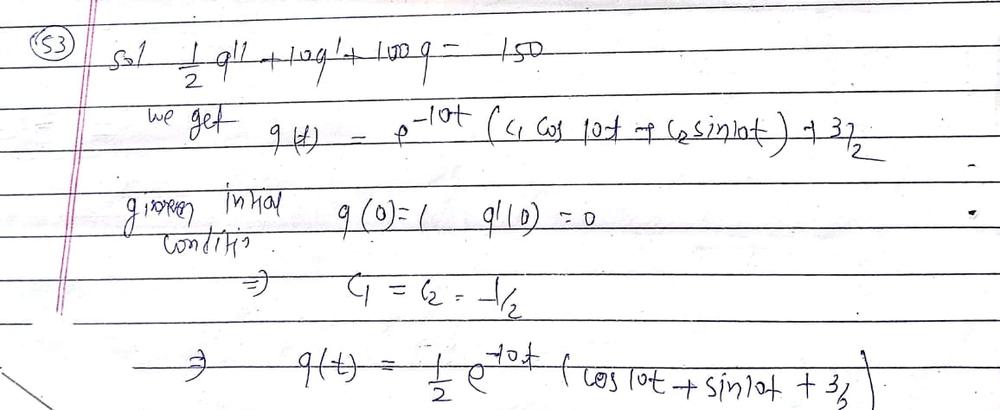 53
Sol 1/2 q'' + 10q' + 100q = 150
we get q(t) = e^-10t (c1 cos 10t + c2 sin10t) + 3/2
given initial q(0)=1 q'(0) = 0
conditio.
⇒ c1 = c2 = -1/2
⇒ q(t) = 1/2 e^-10t (cos 10t + sin10t + 3/2)